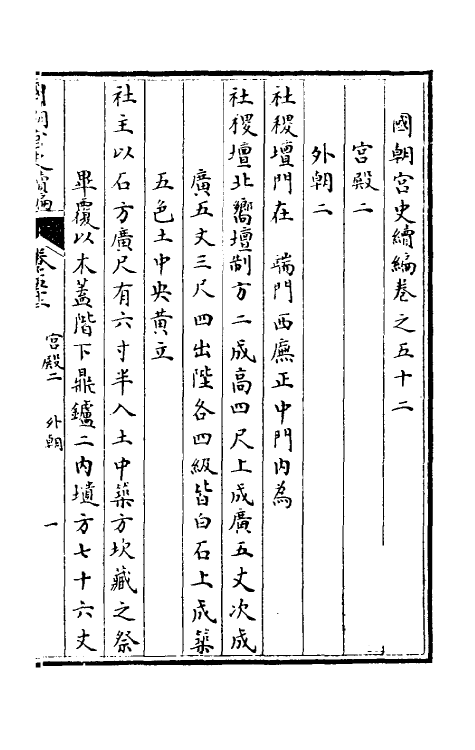 國朝宮史續編卷之五十二
宮殿二
外朝二
社稷壇門在 端門西廡正中門內為
社稷壇北嚮壇制方二成高四尺上成廣五丈次成
廣五丈三尺四出陛各四級皆白石上成築
五色土中央黃立
社主以石方廣尺有六寸半入土中築方坎藏之祭
畢覆以木蓋階下鼎鑪二內壝方七十六丈
國朝宮史續編 卷之五十二 宮殿二 外朝 一